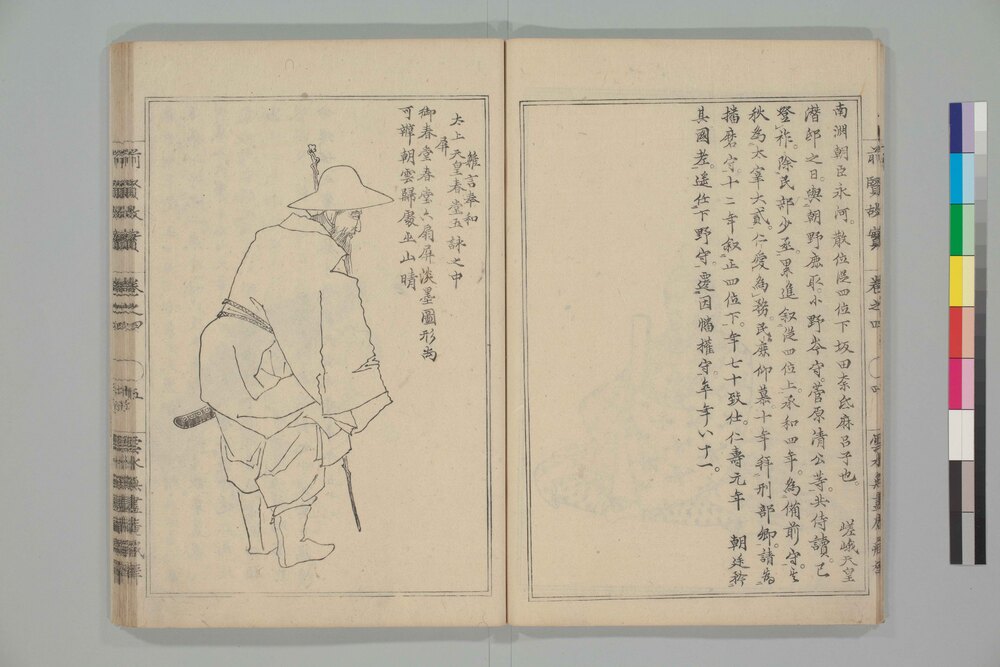 南淵朝臣永河。散位從四位下坂田奈氐麻呂子也。 嵯峨天皇
潛邸之日。與朝野鹿取。小野岑守。菅原清公等。共侍讀。已
登祚。除民部少丞。累進叙從四位上。承和四年。為備前守。
秋為太宰大貳。仁愛為務。民庶仰慕十年拜刑部卿。請為
播磨守。十二年叙正四位下。年七十致仕。仁壽元年 朝廷矜
其國老。遥任下野守。遷因幡權守。卒年八十一。
前賢故實 卷之四
雜言奉和
太上天皇春堂五詠之中
屏
御春堂春堂六扇屏淡墨圖形尚
可辨朝雲歸處巫山晴
前賢故實 卷之四 五